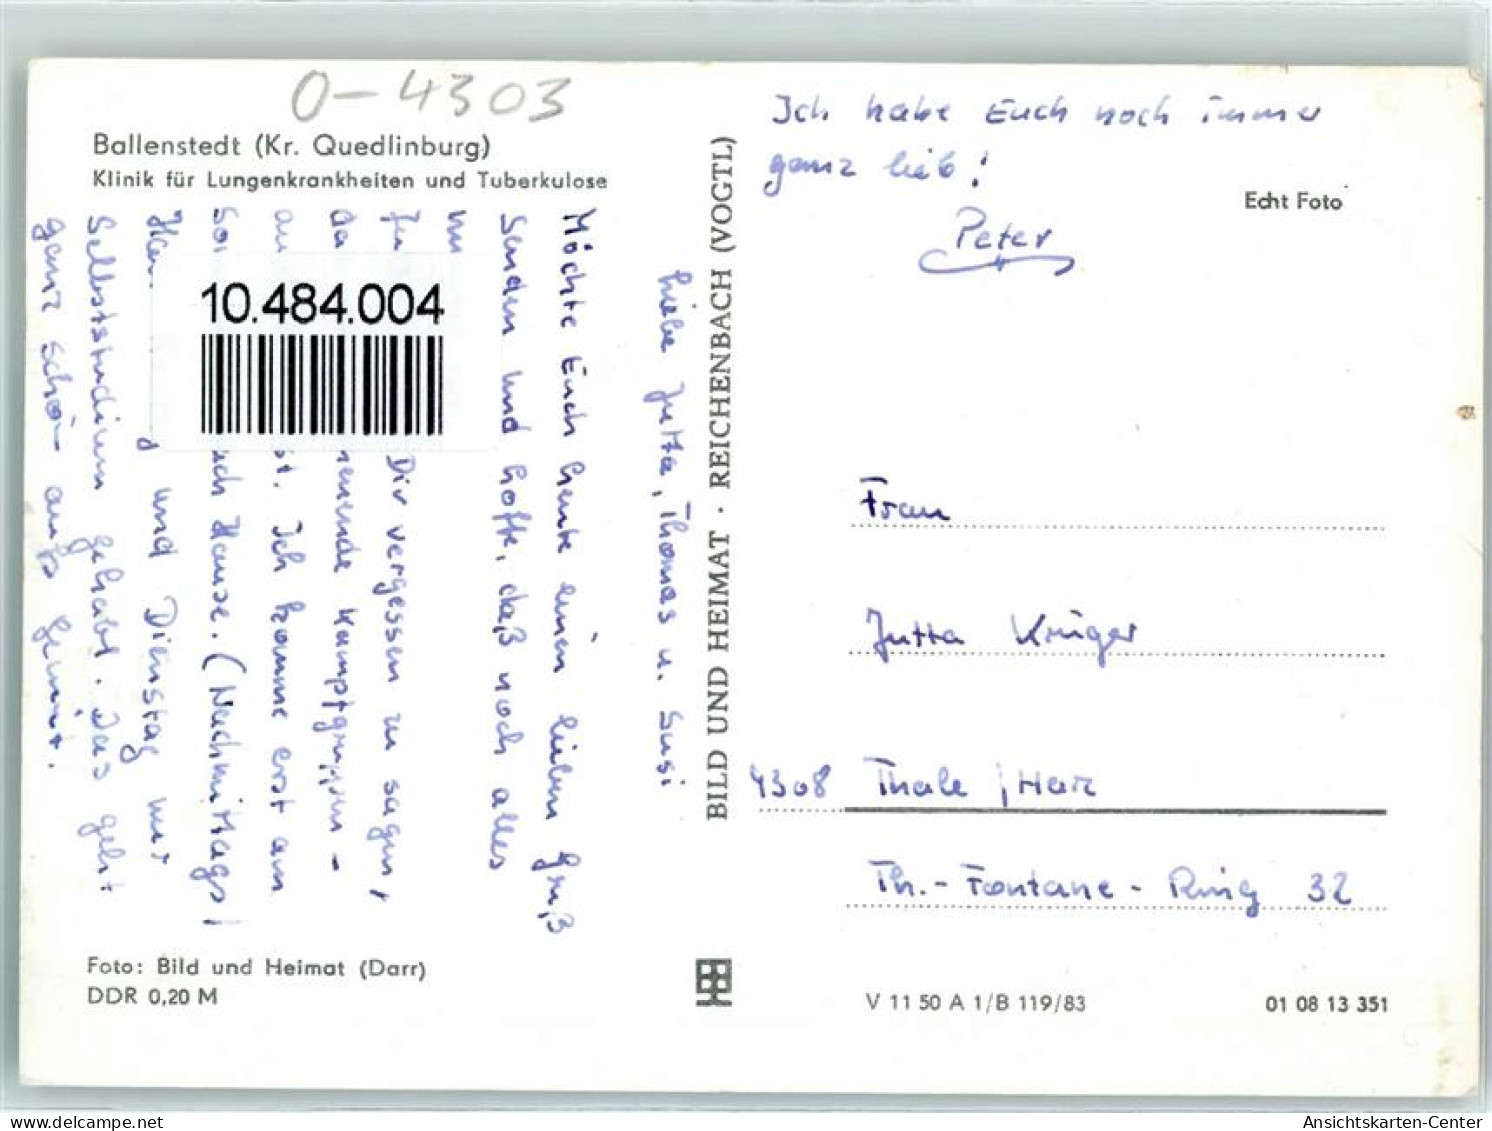 O-4303
Ballenstedt (Kr. Quedlinburg)
Klinik für Lungenkrankheiten und Tuberkulose
Liebe Jutta, Thomas u. Susi
Möchte Euch heute einen lieben Gruß
senden und hoffe, daß noch alles
Dir vergessen zu sagen,
Kampfgruppen-
st. Ich komme erst am
Hause. (Nachmittags)
und Dienstag nur
Selbststudium gehabt. Das geht
ganz schön aufs Gemüt.
10.484.004
Foto: Bild und Heimat (Darr)
DDR 0,20 M
BILD UND HEIMAT · REICHENBACH (VOGTL)
Ich habe Euch noch immer
ganz lieb!
Peter
Echt Foto
Frau
Jutta Krüger
4308 Thale / Harz
Th.-Fontane-Ring 32
V 11 50 A 1/B 119/83
01 08 13 351
delcampe.net
Ansichtskarten-Center